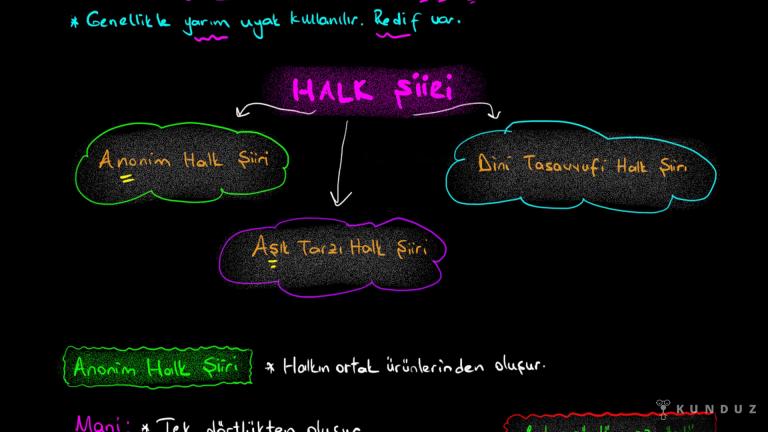 * Genellikle yarım uyak kullanılır. Redif var.
HALK Şiiri
Anonim Halk Şiiri
Dini Tasavvufi Halk Şiiri
Aşık Tarzı Halk Şiiri
Anonim Halk Şiiri * Halkın ortak ürünlerinden oluşur.
Mani: * Tek dörtlükten oluşur
KUNDUZ